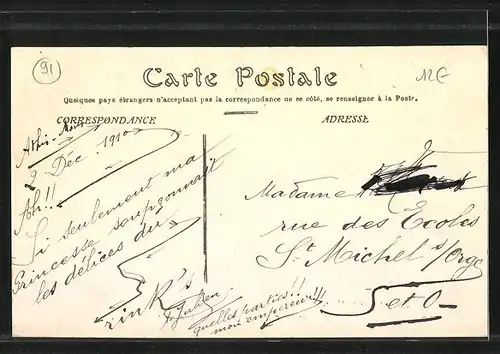 91
12€
Carte Postale
Quelques pays étrangers n'acceptant pas la correspondance de ce côté, se renseigner à la Poste.
CORRESPONDANCE
ADRESSE
Athis-Mons
2 Déc. 1910
Ah!!
Si seulement ma
Princesse soupçonnait
les délices du
rink's
Julien
quelles parties!!
mon empereur!!!
Madame
rue des Ecoles
St Michel s/Orge
S et O